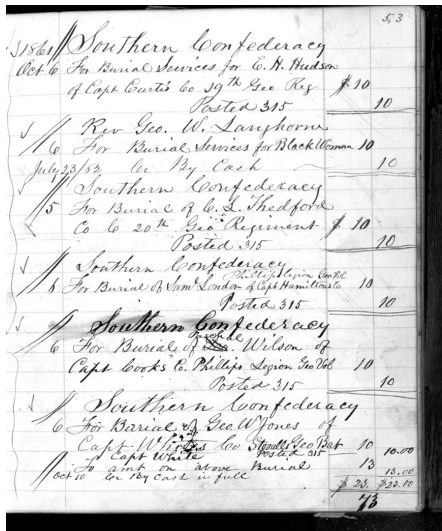 53
1861 Southern Confederacy
Oct 6 For Burial Services for E. H. Hudson
of Capt Curtis Co 19th Geo Reg $10
Posted 315 10
Rev Geo. W. Langhorne
6 For Burial Services for Black Woman 10
July 23/63 Cr By Cash 10
Southern Confederacy
5 For Burial of C. L. Thedford
Co C 20th Geo Regiment $10
Posted 315 10
Southern Confederacy
Phillips Legion Geo Vol
6 For Burial of Saml London of Capt Hamilton Co 10
Posted 315 10
Southern Confederacy
6 For Burial of Wilson of
Capt Cooks E. Phillips Legion Geo Vol 10
Posted 315 10
Southern Confederacy
6 For Burial of Geo W Jones of
Capt Co Geo Bat 10 10.00
" Capt White Posted 315
To amt on above Burial 13 13.00
Oct 10 Cr By Cash in full $23. $23.00
73